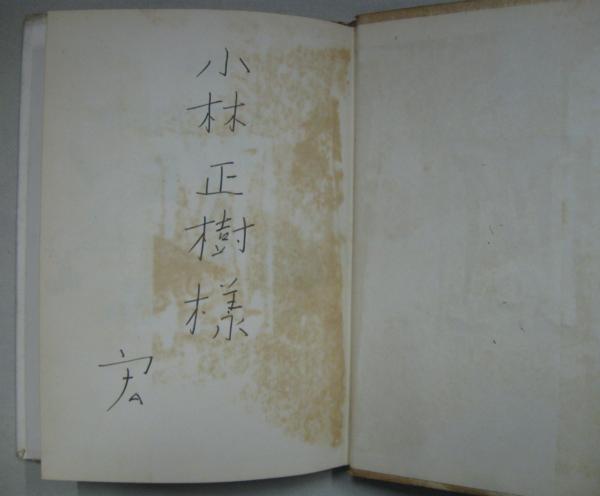 小林正樹様
宏